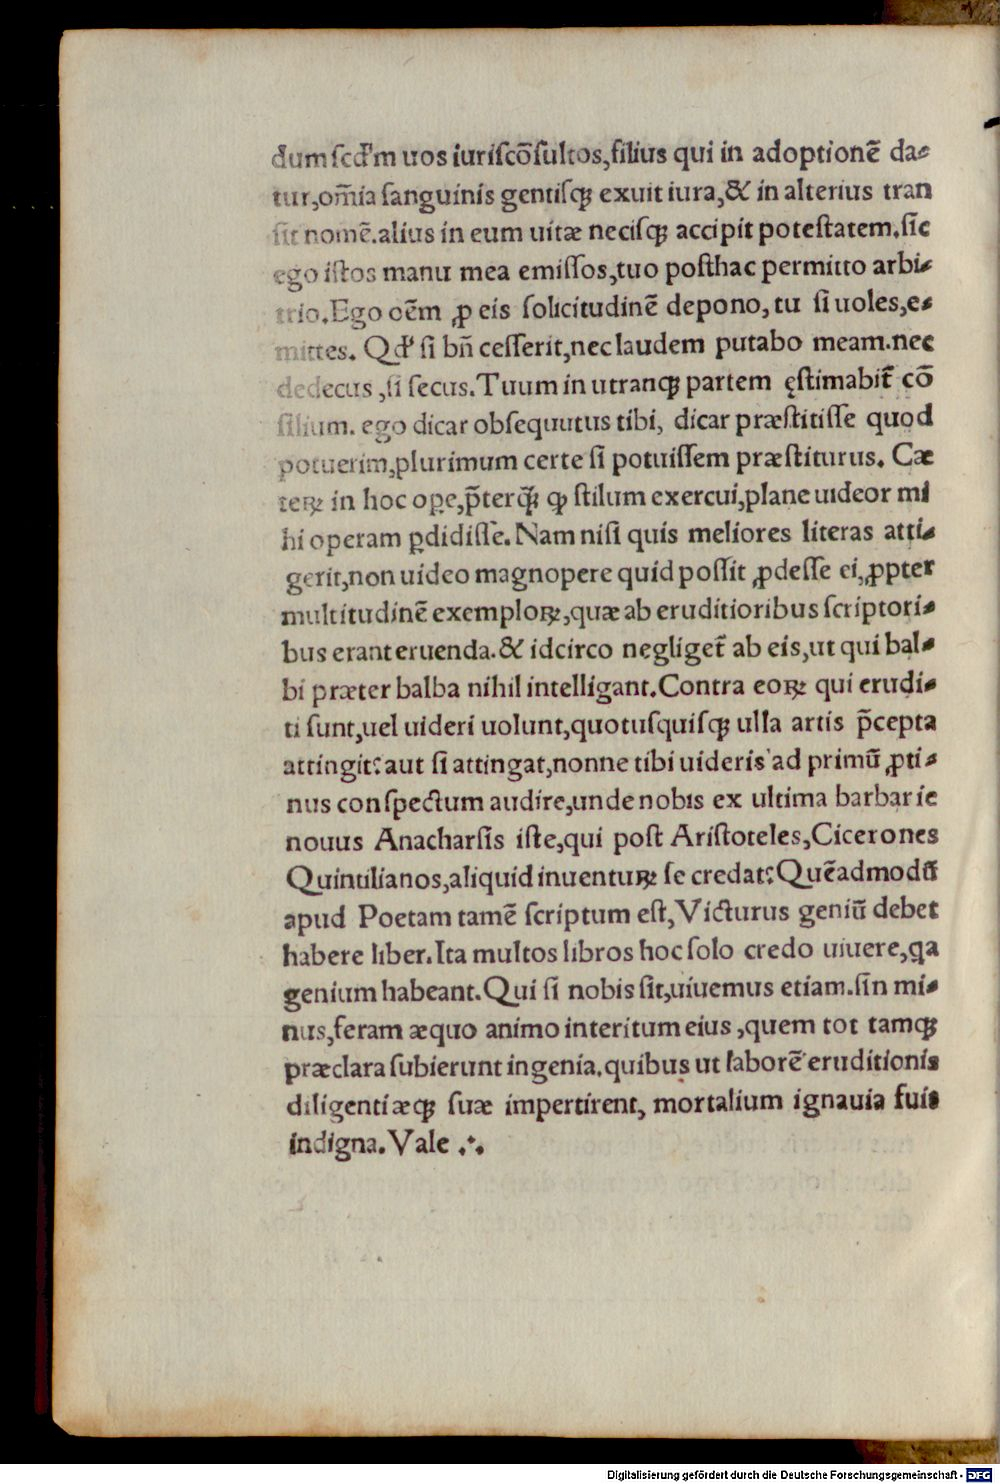 dum scd'm uos iuriscōsultos,filius qui in adoptionē da-
tur,om̄ia sanguinis gentisq; exuit iura,& in alterius tran
sit nomē.alius in eum uitæ necisq; accipit potestatem.sic
ego istos manu mea emissos,tuo posthac permitto arbi-
trio.Ego oēm ꝓ eis solicitudinē depono, tu si uoles,e-
mittes. Qd' si bn̄ cesserit,nec laudem putabo meam.nec
dedecus ,si secus.Tuum in utranq; partem ęstimabit̄ cō
silium. ego dicar obsequutus tibi, dicar præstitisse quod
potuerim,plurimum certe si potuissem præstiturus. Cæ
teꝝ in hoc oꝑe,p̄terq̄; ꝙ stilum exercui,plane uideor mi
hi operam ꝑdidisse.Nam nisi quis meliores literas atti-
gerit,non uideo magnopere quid possit ꝓdesse ei,ꝓpter
multitudinē exemploꝝ,quæ ab eruditioribus scriptori-
bus erant eruenda.& idcirco negliget̄ ab eis,ut qui bal-
bi præter balba nihil intelligant.Contra eoꝝ qui erudi-
ti sunt,uel uideri uolunt,quotusquisq; ulla artis p̄cepta
attingit?aut si attingat,nonne tibi uideris ad primū ꝓti-
nus conspectum audire,unde nobis ex ultima barbarie
nouus Anacharsis iste,qui post Aristoteles,Cicerones
Quintilianos,aliquid inuentuꝝ se credat?Quēadmodū
apud Poetam tamē scriptum est,Victurus geniū debet
habere liber.Ita multos libros hoc solo credo uiuere,qa
genium habeant.Qui si nobis sit,uiuemus etiam.sin mi-
nus,feram æquo animo interitum eius ,quem tot tamq;
præclara subierunt ingenia.quibus ut laborē eruditionis
diligentiæq; suæ impertirent, mortalium ignauia fuis
indigna.Vale .·.
Digitalisierung gefördert durch die Deutsche Forschungsgemeinschaft - DFG